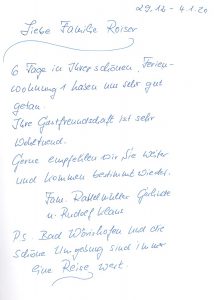 29.12 - 4.1.20
Liebe Familie Roiser
6 Tage in Ihrer schönen Ferien-
wohnung 1 haben uns sehr gut
getan.
Ihre Gastfreundschaft ist sehr
wohltuend.
Gerne empfehlen wir Sie weiter
und kommen bestimmt wieder.
Fam.
u. Rudolf Klaus
P.S. Bad Wörishofen und die
schöne Umgebung sind immer
eine Reise wert.